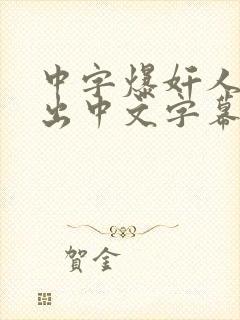 中字爆奸人
出中文字幕
賀金